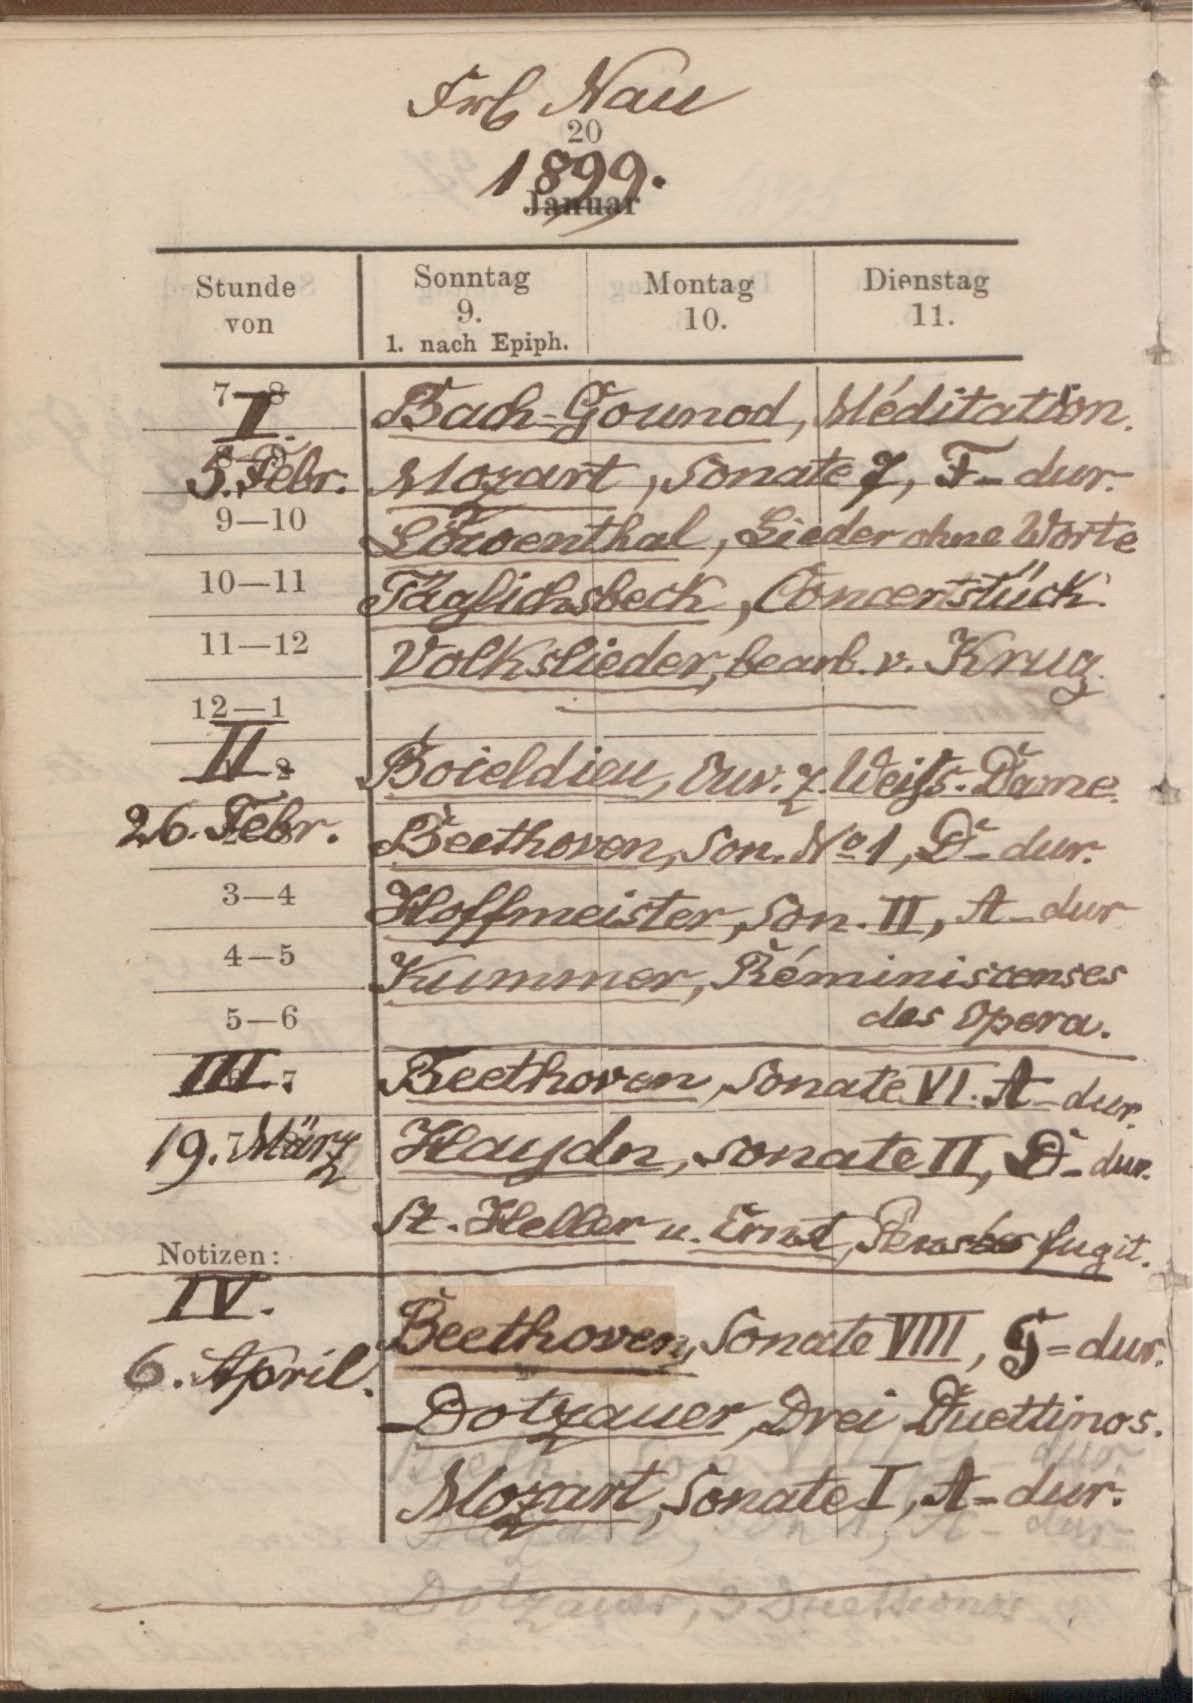 Frl Nau
20
1899.
Januar
Stunde von
Sonntag 9. 1. nach Epiph.
Montag 10.
Dienstag 11.
7—8
I.
Bach-Gounod, Méditation.
5. Febr.
Mozart, Sonate 7, F-dur.
9—10
Löwenthal, Lieder ohne Worte
10—11
Täglichsbeck, Concertstück.
11—12
Volkslieder, bearb. v. Krug.
12—1
II.
Boieldieu, Ouv. z. Weiß. Dame.
26. Febr.
Beethoven, Son. No 1, D-dur.
3—4
Hoffmeister, Son. II, A-dur
4—5
Kummer, Réminiscenses
5—6
des Opera.
III.
7
Beethoven, Sonate VI. A-dur.
19. März
Haydn, Sonate II, D-dur.
St. Heller u. Ernst, fugit.
Notizen:
IV.
Beethoven, Sonate VIII, G-dur.
6. April.
Dotzauer, Drei Duettinos.
Beeth. Son. VIII G-dur
Mozart, Sonate I, A-dur.
Mozart, Son. I, A-dur
Dotzauer, 3 Duettinos